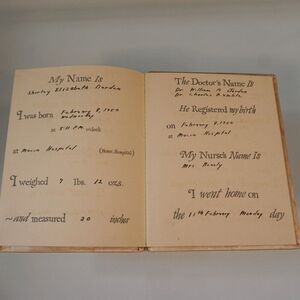 My Name Is
Shirley Elizabeth
I was born February 8, 1900
Wednesday
at 8:11 P.M. o'clock
at Macon Hospital
(Home, Hospital)
I weighed 7 lbs. 12 ozs.
~and measured 20 inches
The Doctor's Name Is
Dr. William M.
Dr. Charles
He Registered my birth
on February 9, 1900
at Macon Hospital
My Nurse's Name Is
Mrs.
I went home on
the 11th February Monday day